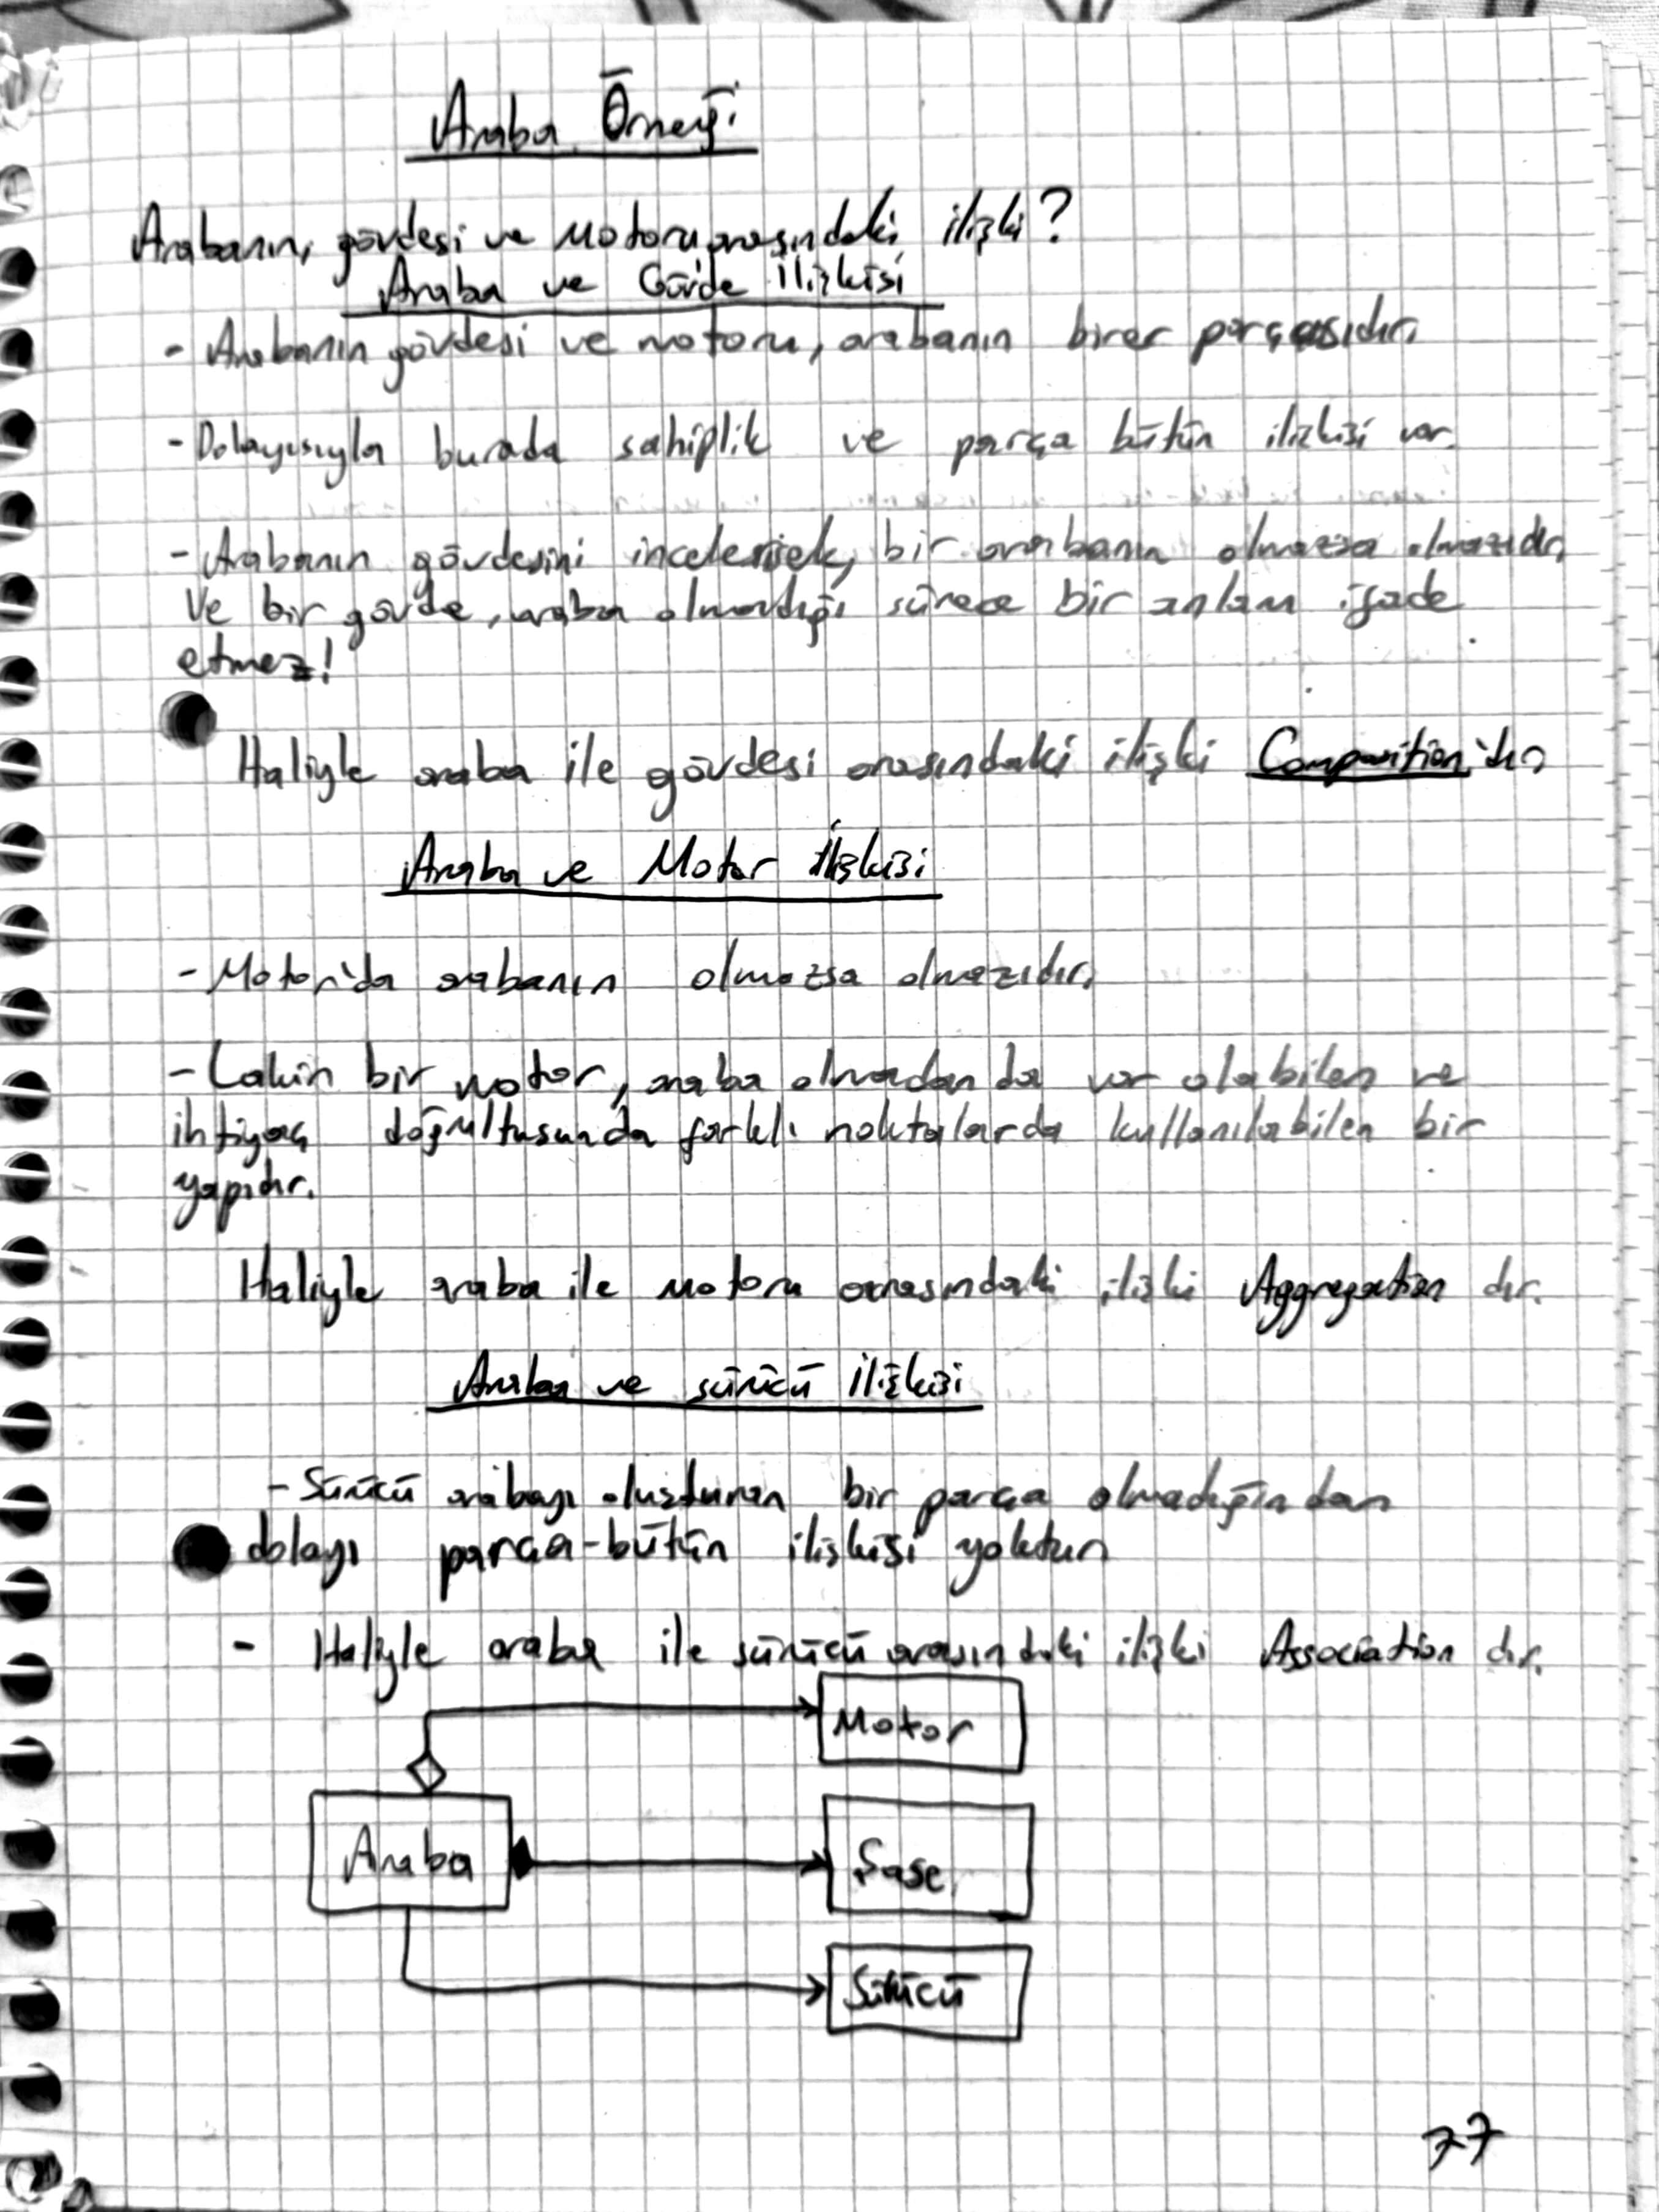 Araba Örneği
Arabanın, gövdesi ve Motoru arasındaki ilişki?
Araba ve Gövde İlişkisi
- Arabanın gövdesi ve motoru, arabanın birer parçasıdır.
- Dolayısıyla burada sahiplik ve parça bütün ilişkisi var.
- Arabanın gövdesini incelersek, bir arabanın olmazsa olmazıdır.
Ve bir gövde, araba olmadığı sürece bir anlam ifade
etmez!
Haliyle araba ile gövdesi arasındaki ilişki Composition'dır
Araba ve Motor İlişkisi
- Motor'da arabanın olmazsa olmazıdır.
- Lakin bir motor, araba olmadan da var olabilen ve
ihtiyaç doğrultusunda farklı noktalarda kullanılabilen bir
yapıdır.
Haliyle araba ile Motoru arasındaki ilişki Aggregation dır.
Araba ve sürücü ilişkisi
- Sürücü arabayı oluşturan bir parça olmadığından
dolayı parça-bütün ilişkisi yoktur
- Haliyle araba ile sürücü arasındaki ilişki Association dır.
Motor
Araba
Şase
Sürücü
77